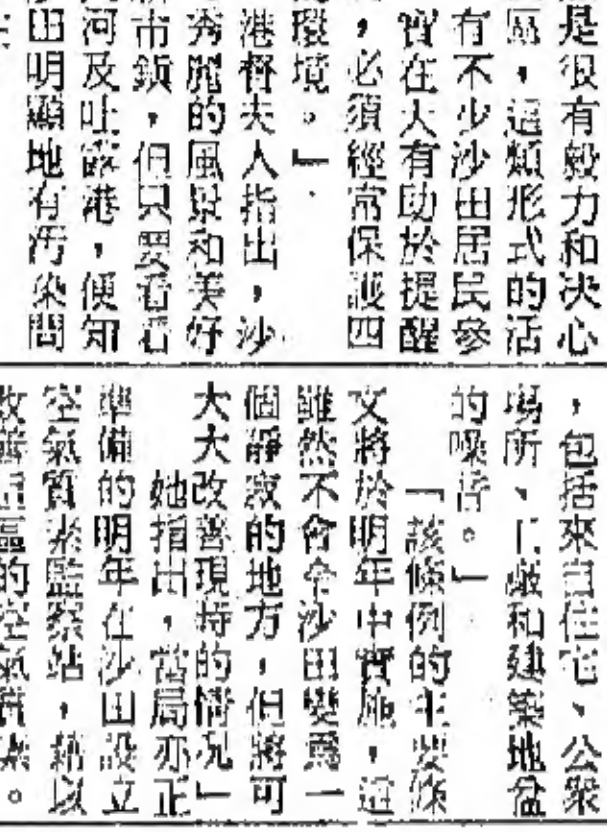 是很有毅力和決心
區，這類形式的活
有不少沙田居民參
實在大有助於提醒
，必須經常保護四
環境。」
港督夫人指出，沙
秀麗的風景和美好
市鎮，但只要看看
河及吐露港，便知
田明顯地有污染問
，包括來自住宅、公眾
場所、工廠和建築地盆
的噪音。」
「該條例的主要條
文將於明年中實施，這
雖然不會令沙田變爲一
個靜寂的地方，但將可
大大改善現時的情況」
她指出，當局亦正
準備的明年在沙田設立
空氣質素監察站，藉以
改善這區的空氣質素。